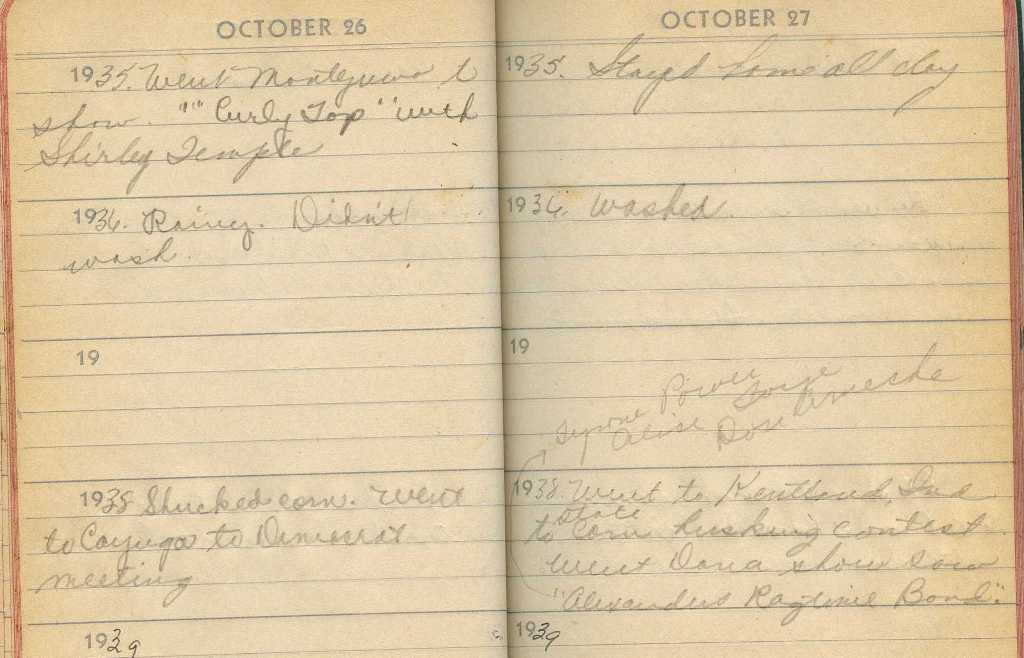 OCTOBER 26
1935. Went Montezuma to
show. "" Curly Top " with
Shirley Temple
1936. Rainy. Didn't
wash.
19
1938 Shucked corn. Went
to Cayuga to Democrat
meeting
1939
OCTOBER 27
1935. Stayed home all day
1936. Washed
19
Tyrone Power
Alice Faye
Don Ameche
1938. Went to Kentland, Ind
to State corn husking contest.
Went Dana show saw
"Alexanders Ragtime Band".
1939